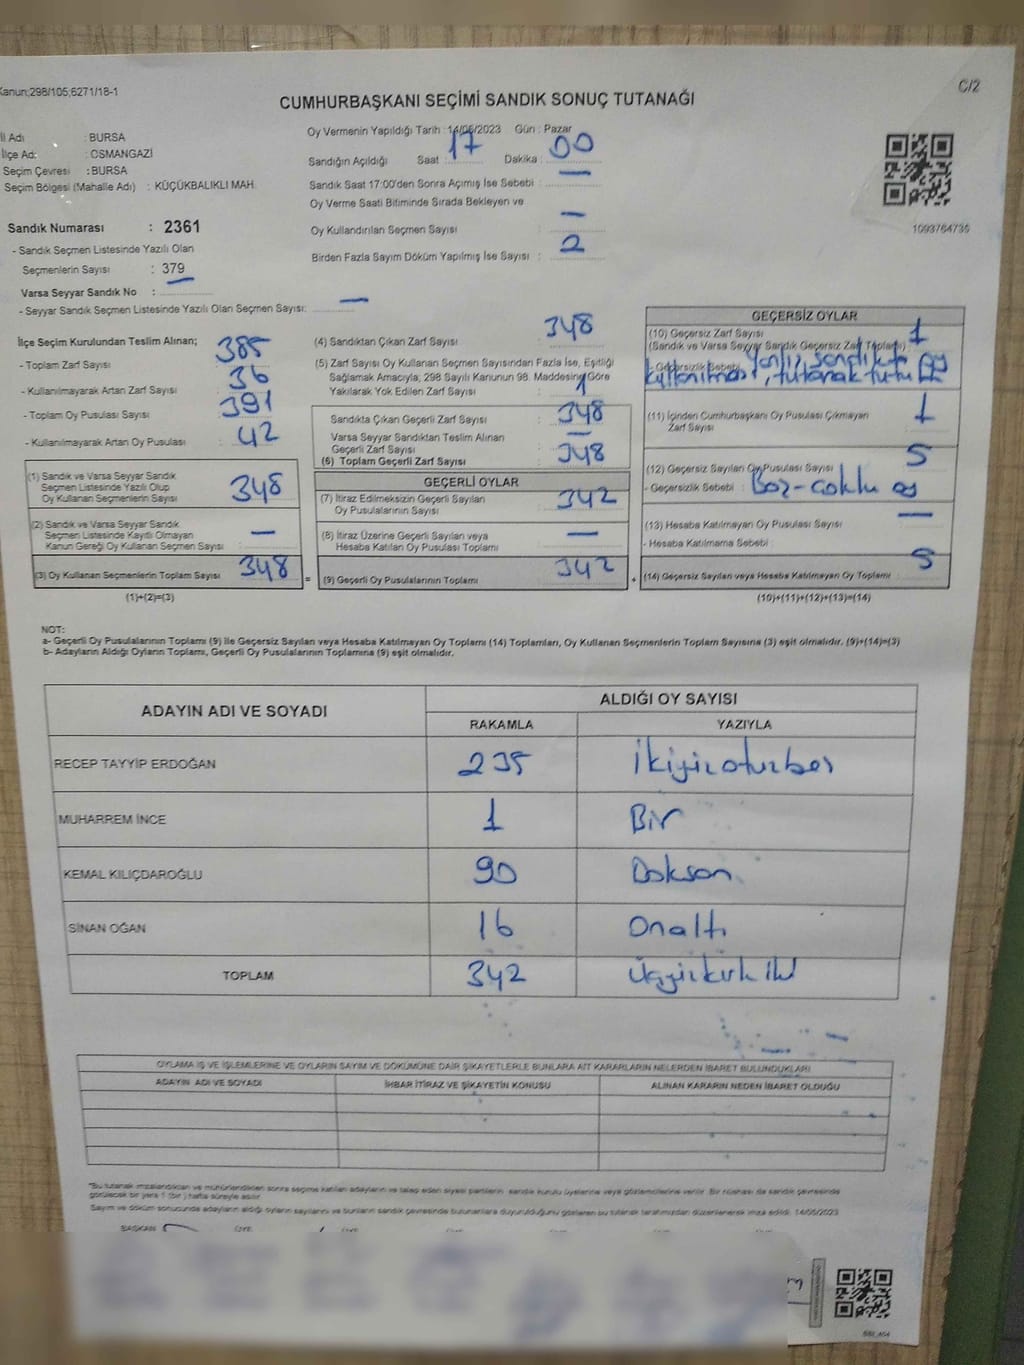 Kanun;298/105;6271/18-1
C/2
CUMHURBAŞKANI SEÇİMİ SANDIK SONUÇ TUTANAĞI
İl Adı : BURSA
İlçe Adı : OSMANGAZİ
Seçim Çevresi : BURSA
Seçim Bölgesi (Mahalle Adı) : KÜÇÜKBALIKLI MAH.
Sandık Numarası : 2361
- Sandık Seçmen Listesinde Yazılı Olan
Seçmenlerin Sayısı : 379
Varsa Seyyar Sandık No :
- Seyyar Sandık Seçmen Listesinde Yazılı Olan Seçmen Sayısı: —
Oy Vermenin Yapıldığı Tarih : 14/05/2023 Gün : Pazar
Sandığın Açıldığı Saat : 17 Dakika : 00
Sandık Saat 17:00'den Sonra Açılmış İse Sebebi : —
Oy Verme Saati Bitiminde Sırada Bekleyen ve
Oy Kullandırılan Seçmen Sayısı : —
Birden Fazla Sayım Döküm Yapılmış İse Sayısı : 2
1093764735
İlçe Seçim Kurulundan Teslim Alınan;
- Toplam Zarf Sayısı : 385
- Kullanılmayarak Artan Zarf Sayısı : 36
- Toplam Oy Pusulası Sayısı : 391
- Kullanılmayarak Artan Oy Pusulası : 42
(1) Sandık ve Varsa Seyyar Sandık
Seçmen Listesinde Yazılı Olup
Oy Kullanan Seçmenlerin Sayısı : 348
(2) Sandık ve Varsa Seyyar Sandık
Seçmen Listesinde Kayıtlı Olmayan
Kanun Gereği Oy Kullanan Seçmen Sayısı : —
(3) Oy Kullanan Seçmenlerin Toplam Sayısı 348
(1)+(2)=(3)
(4) Sandıktan Çıkan Zarf Sayısı : 348
(5) Zarf Sayısı Oy Kullanan Seçmen Sayısından Fazla İse, Eşitliği
Sağlamak Amacıyla; 298 Sayılı Kanunun 98. Maddesine Göre
Yakılarak Yok Edilen Zarf Sayısı : 1
Sandıkta Çıkan Geçerli Zarf Sayısı : 348
Varsa Seyyar Sandıktan Teslim Alınan
Geçerli Zarf Sayısı : —
(6) Toplam Geçerli Zarf Sayısı : 348
GEÇERLİ OYLAR
(7) İtiraz Edilmeksizin Geçerli Sayılan
Oy Pusulalarının Sayısı : 342
(8) İtiraz Üzerine Geçerli Sayılan veya
Hesaba Katılan Oy Pusulası Toplamı : —
= (9) Geçerli Oy Pusulalarının Toplamı : 342
GEÇERSİZ OYLAR
(10) Geçersiz Zarf Sayısı : 1
(Sandık ve Varsa Seyyar Sandık Geçersiz Zarf Toplamı)
- Geçersizlik Sebebi : Yanlış sandıkta oy
kullanılması, tutanak tutu
(11) İçinden Cumhurbaşkanı Oy Pusulası Çıkmayan
Zarf Sayısı : 1
(12) Geçersiz Sayılan Oy Pusulası Sayısı : 5
- Geçersizlik Sebebi : Boş-çoklu oy
(13) Hesaba Katılmayan Oy Pusulası Sayısı : —
- Hesaba Katılmama Sebebi :
+ (14) Geçersiz Sayılan veya Hesaba Katılmayan Oy Toplamı : 5
(10)+(11)+(12)+(13)=(14)
NOT:
a- Geçerli Oy Pusulalarının Toplamı (9) ile Geçersiz Sayılan veya Hesaba Katılmayan Oy Toplamı (14) Toplamları, Oy Kullanan Seçmenlerin Toplam Sayısına (3) eşit olmalıdır. (9)+(14)=(3)
b- Adayların Aldığı Oyların Toplamı, Geçerli Oy Pusulalarının Toplamına (9) eşit olmalıdır.
ADAYIN ADI VE SOYADI ALDIĞI OY SAYISI
RAKAMLA YAZIYLA
RECEP TAYYİP ERDOĞAN 235 İkiyüzotuzbeş
MUHARREM İNCE 1 Bir
KEMAL KILIÇDAROĞLU 90 Doksan
SİNAN OĞAN 16 Onaltı
TOPLAM 342 Üçyüzkırkiki
OYLAMA İŞ VE İŞLEMLERİNE VE OYLARIN SAYIM VE DÖKÜMÜNE DAİR ŞİKAYETLERLE BUNLARA AİT KARARLARIN NELERDEN İBARET BULUNDUKLARI
ADAYIN ADI VE SOYADI İHBAR İTİRAZ VE ŞİKAYETİN KONUSU ALINAN KARARIN NEDEN İBARET OLDUĞU
"Bu tutanak imzalandıktan ve mühürlendikten sonra seçime katılan adayların ve talep eden siyasi partilerin sandık kurulu üyelerine veya gözlemcilerine verilir. Bir nüshası da sandık çevresinde
görülecek bir yere 1 (bir) hafta süreyle asılır.
Sayım ve döküm sonucunda adayların aldığı oyların sayılarını ve bunların sandık çevresinde bulunanlara duyurulduğunu gösteren bu tutanak tarafımızdan düzenlenerek imza edildi. 14/05/2023
BAŞKAN ÜYE ÜYE